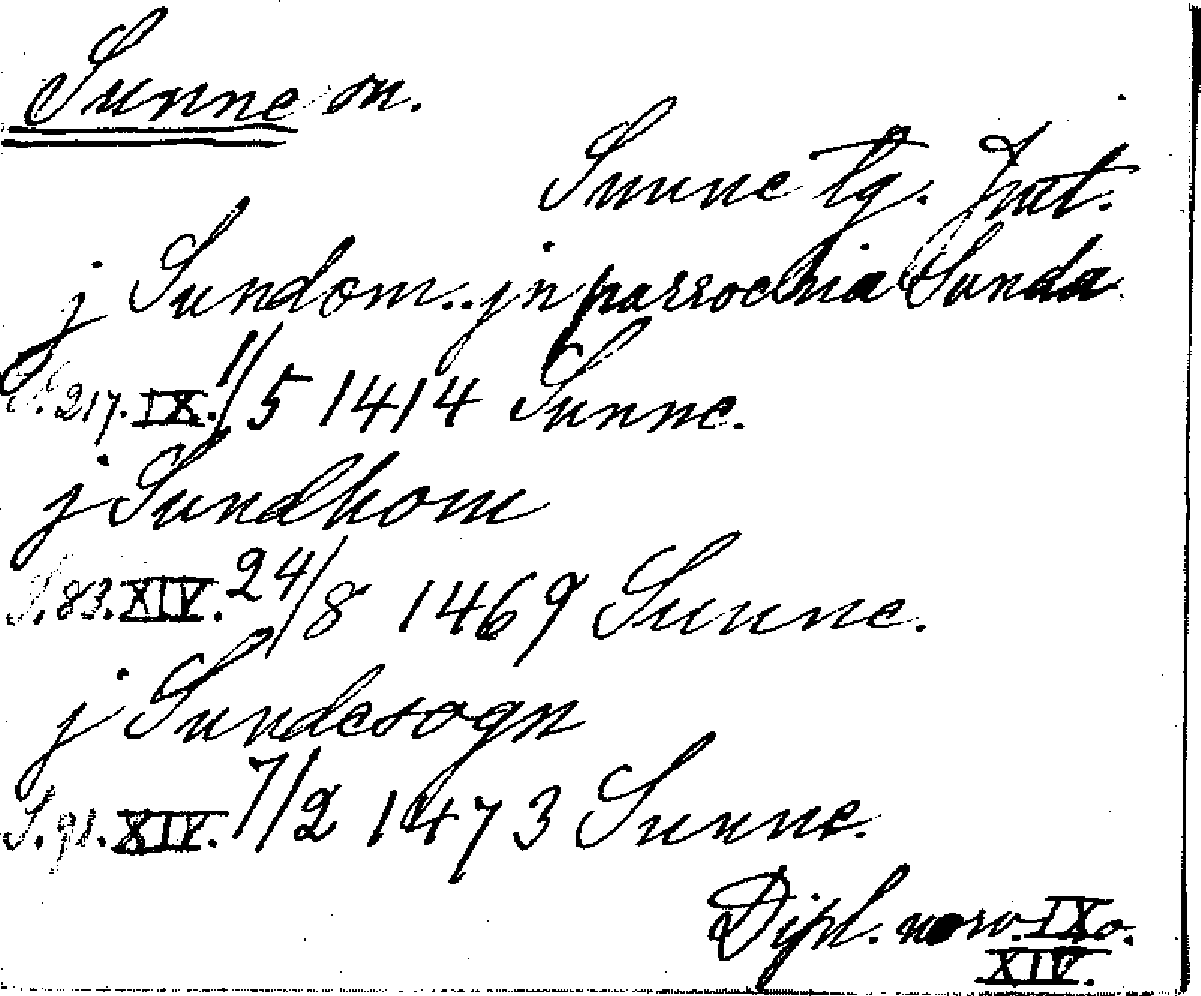 Sunne sn.
Sunne tg. Jmt.
j Sundom.. jn parrochia Sunda
S. 217. IX. 1/5 1414 Sunne.
j Sundhom
S. 83. XIV. 24/8 1469 Sunne.
j Sundesogn
S. 91. XIV. 7/2 1473 Sunne.
Dipl. norv. IX o.
XIV.